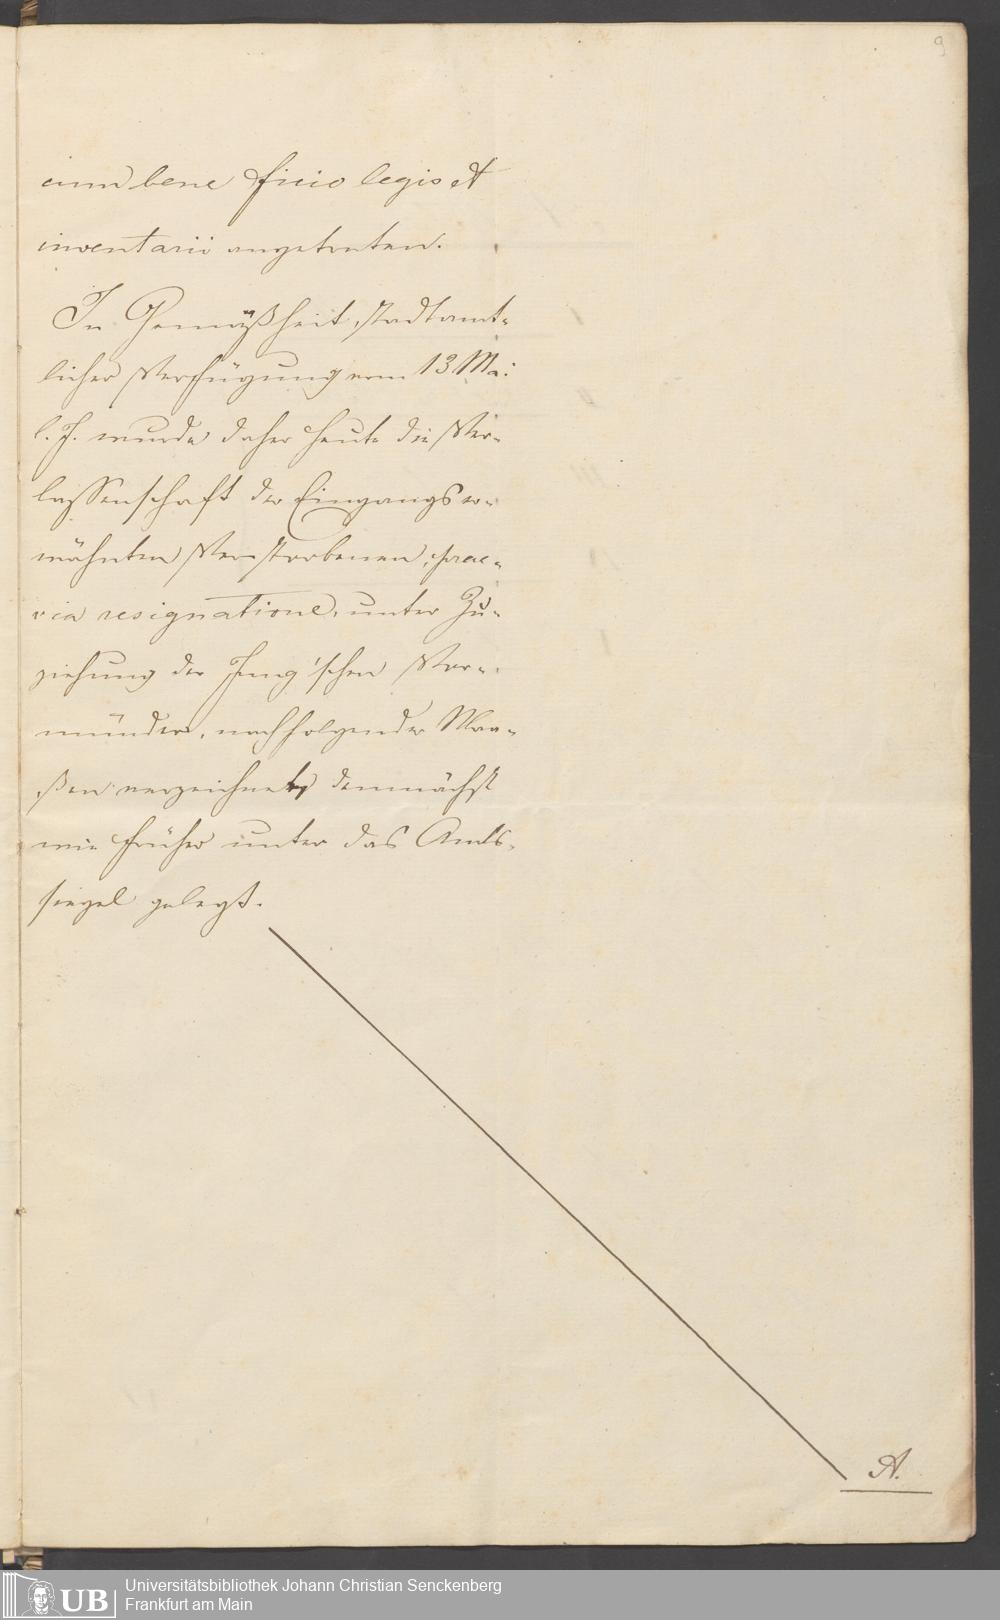 9
cum bene ficio legis et
inventarii angetreten.
In Gemäßheit stadtamt-
licher Verfügung vom 13 Mai
l. J. wurde daher heute die Ver-
lassenschaft der Eingangser-
wähnten Verstorbenen, prae-
via resignatione, unter Zu-
ziehung der Jung'schen Vor-
münder, nachfolgender Maa-
ßen verzeichnet, demnächst
wie früher unter das Amts-
siegel gelegt.
A.
UB
Universitätsbibliothek Johann Christian Senckenberg
Frankfurt am Main